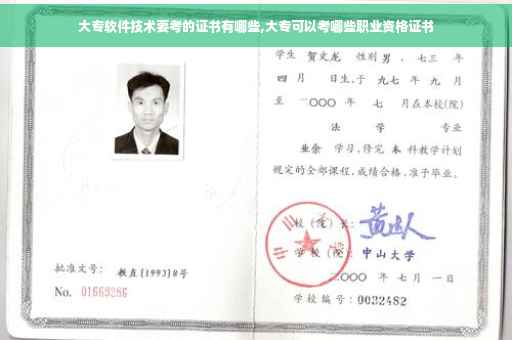 大专软件技术要考的证书有哪些,大专可以考哪些职业资格证书
学生 贺文龙 性别 男 、七三 年
四 月 日生,于 九七 年 九 月
至 二〇〇〇 年 七 月在本校(院)
法 学 专业
业余 学习,修完 本 科教学计划
规定的全部课程,成绩合格,准予毕业。
校(院)长:
学校(院): 中山大学
二〇〇〇 年 七 月 一 日
批准文号: 教直[1993]8号
No. 01663286
学校编号: 0032482